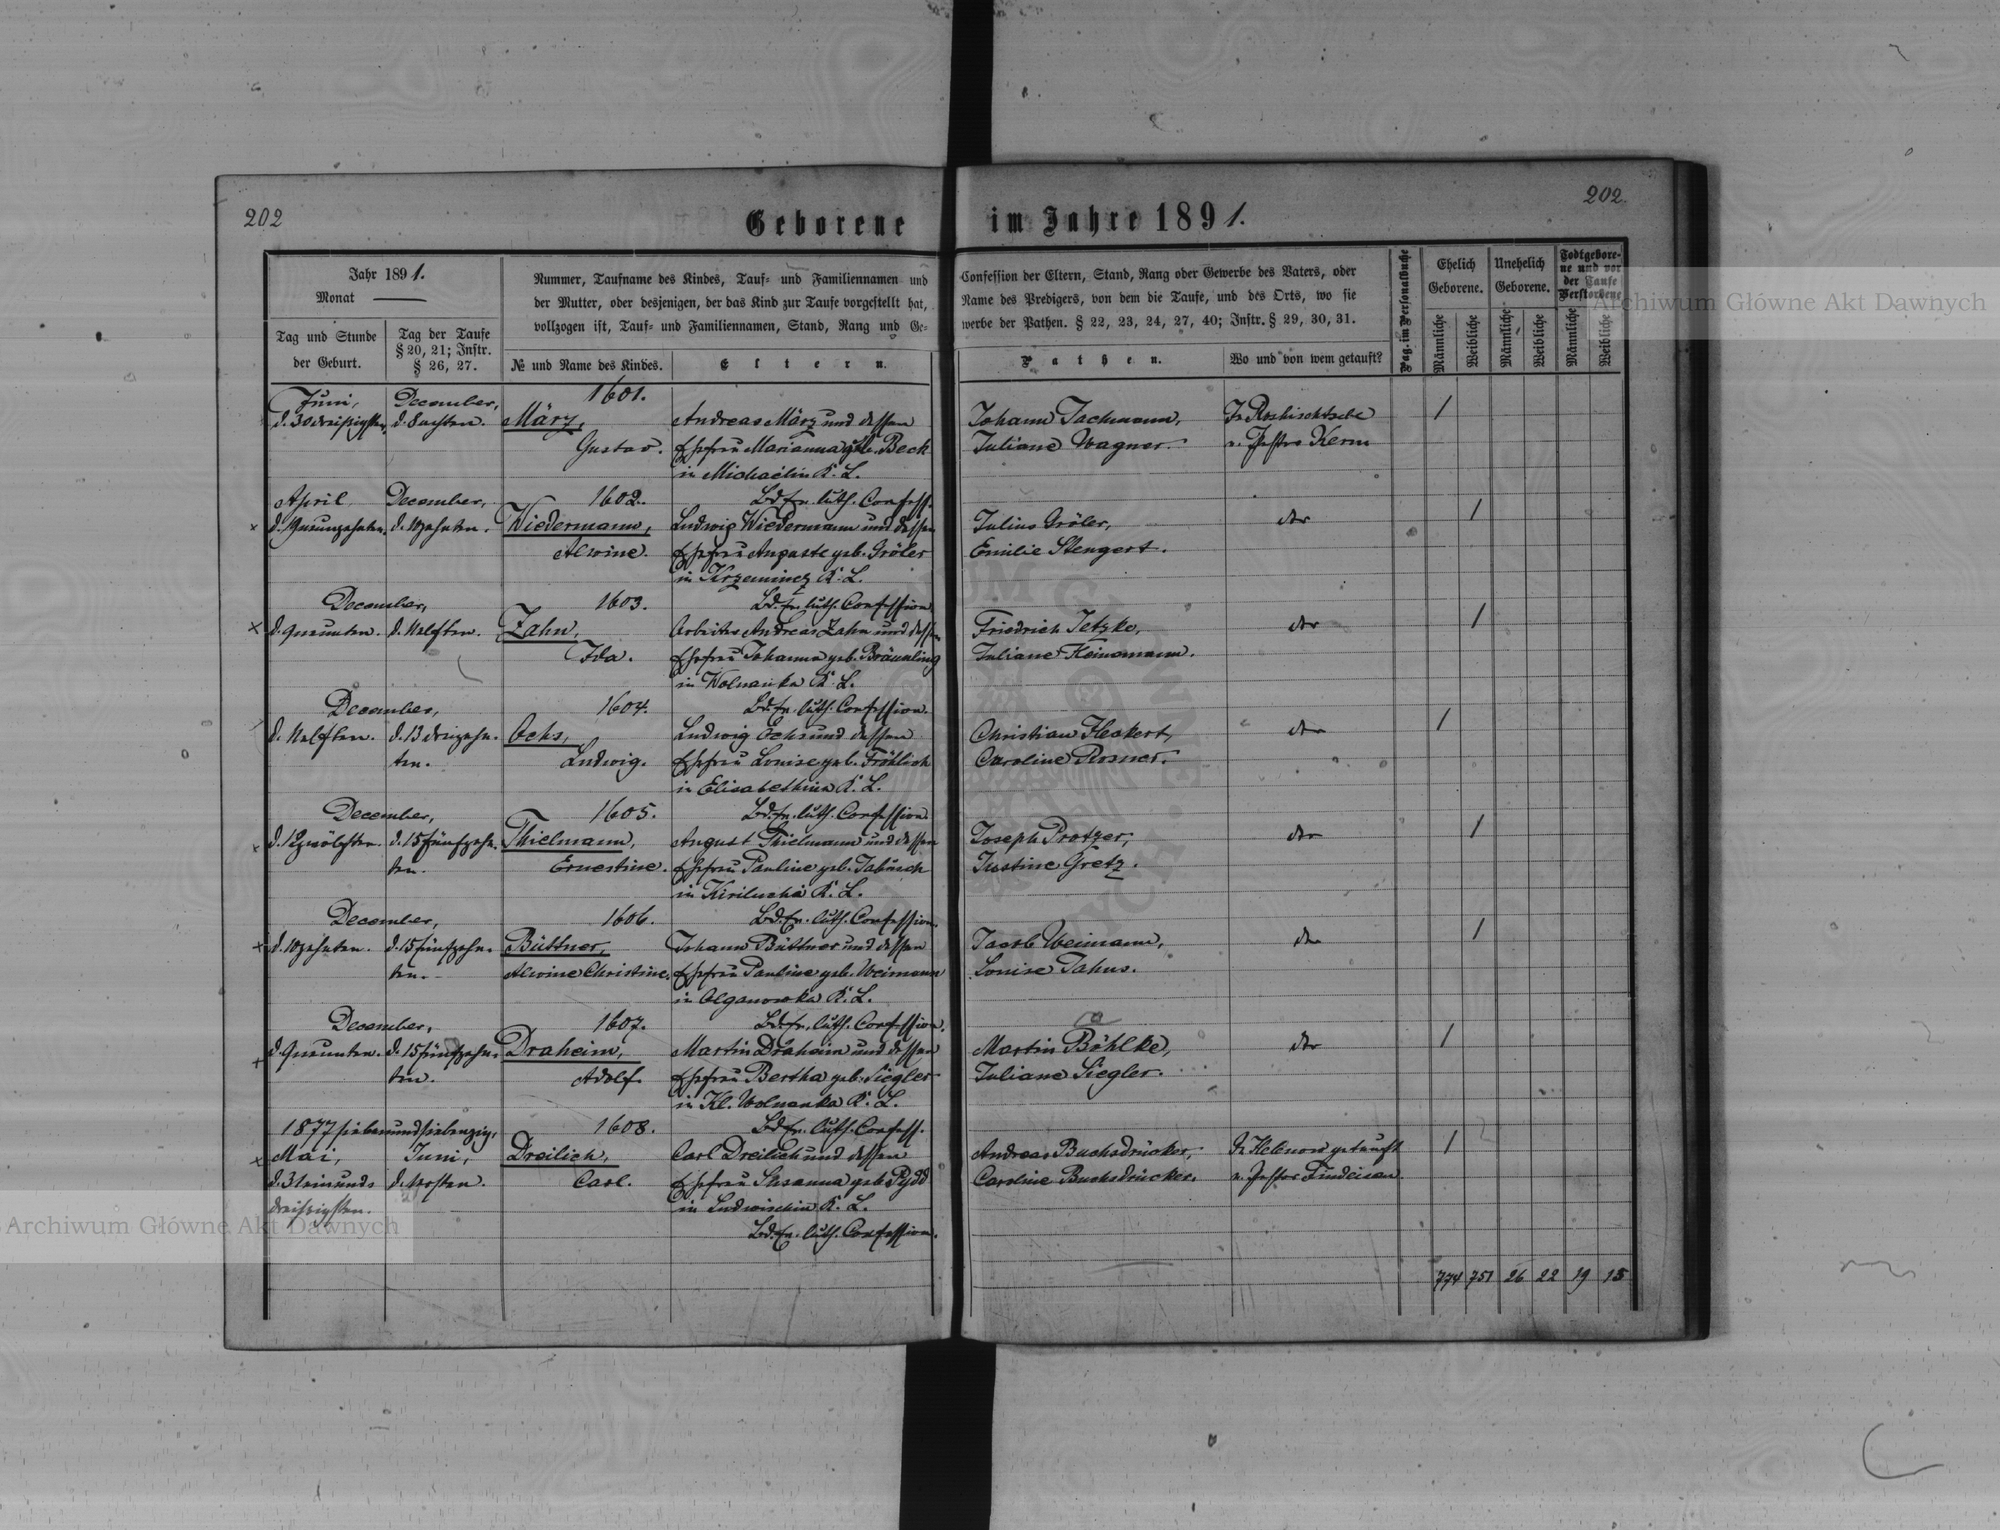 202
202.
Geborene im Jahre 1891.
Jahr 1891.
Monat
Tag und Stunde
der Geburt.
Tag der Taufe
§ 20, 21; Instr.
§ 26, 27.
Nummer, Taufname des Kindes, Tauf- und Familiennamen und
der Mutter, oder desjenigen, der das Kind zur Taufe vorgestellt hat,
vollzogen ist, Tauf- und Familiennamen, Stand, Rang und Ge-
№ und Name des Kindes.
Eltern.
Confession der Eltern, Stand, Rang oder Gewerbe des Vaters, oder
Name des Predigers, von dem die Taufe, und des Orts, wo sie
werbe der Pathen. § 22, 23, 24, 27, 40; Instr. § 29, 30, 31.
Pathen.
Wo und von wem getauft?
Pag. im Personalbuche
Ehelich
Geborene.
Männliche
Weibliche
Unehelich
Geborene.
Männliche
Weibliche
Todtgebore-
ne und vor
der Taufe
Verstorbene
Männliche
Weibliche
Archiwum Główne Akt Dawnych
1601.
Juni, December,
d. 30 dreißigsten. d. 8 achten. März, Andreas März und dessen Johann Tachmann, 1
Gustav. Ehefrau Marianna geb. Beck Juliane Wagner. v. Pastor Kerm
in Michaelin K. L.
April December, 1602. Bd. Ev. luth. Confess.
d. 9 neunzehnten. d. 10 zehnten. Wiedermann, Ludwig Wiedermann und dessen Julius Gröler, 1
Alwine. Ehefrau Auguste geb. Gröler Emilie Stengert.
in Krzeminez K. L.
December, 1603. Bd. Ev. luth. Confession
d. 9 neunten. d. 11 elften. Zahn, Arbeiter Andreas Zahn und dessen Friedrich Jetzke, 1
Ida. Ehefrau Johanna geb. Bräunling Juliane Heinemann.
in Wolnanka K. L.
December, 1604. Bd. Ev. luth. Confession.
d. 11 elften. d. 13 dreizehn- Ochs, Ludwig Ochs und dessen Christian Heckert, 1
ten. Ludwig. Ehefrau Louise geb. Fröhlich Caroline Rosner.
in Elisabethin K. L.
December, 1605. Bd. Ev. luth. Confession
d. 12 zwölften. d. 15 fünfzehn- Thielmann, August Thielmann und dessen Joseph Protzer, 1
ten. Ernestine. Ehefrau Pauline geb. Jabusch Justine Gretz.
in K. L.
December, 1606. Bd. Ev. luth. Confession.
d. 10 zehnten. d. 15 fünfzehn- Büttner, Johann Büttner und dessen Jacob Weimann, 1
ten. Alwine Christine. Ehefrau Pauline geb. Weimann Louise Jahns.
in Olganowka K. L.
December, 1607. Bd. Ev. luth. Confession.
d. 9 neunten. d. 15 fünfzehn- Draheim, Martin Draheim und dessen Martin Böhlke, 1
ten. Adolf. Ehefrau Bertha geb. Siegler Juliane Siegler.
in Kl. Wolnanka K. L.
1877 siebenundsiebenzig, 1608. Bd. Ev. luth. Confess.
Mai, Juni, Dreilich, Carl Dreilich und dessen Andreas Buchsdrücker, getauft 1
d. 31 einund- d. 1 ersten. Carl. Ehefrau Susanna geb. Pydd Caroline Buchsdrücker. v. Pastor Findeisen
dreißigsten. in Ludwischin K. L.
Bd. Ev. luth. Confession.
774 751 26 22 19 15
Archiwum Główne Akt Dawnych